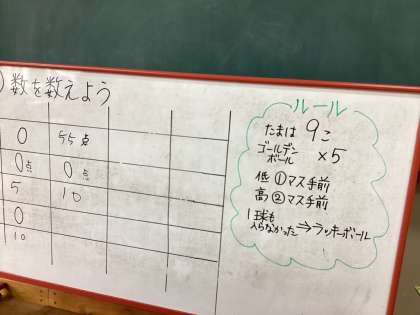 数を数えよう
0 55点
0点 0点
5 10
0
10
ルール
たまは 9こ
ゴールデン
ボール ×5
低 ①マス手前
高 ②マス手前
1球も
入らなかった⇒ラッキーボール